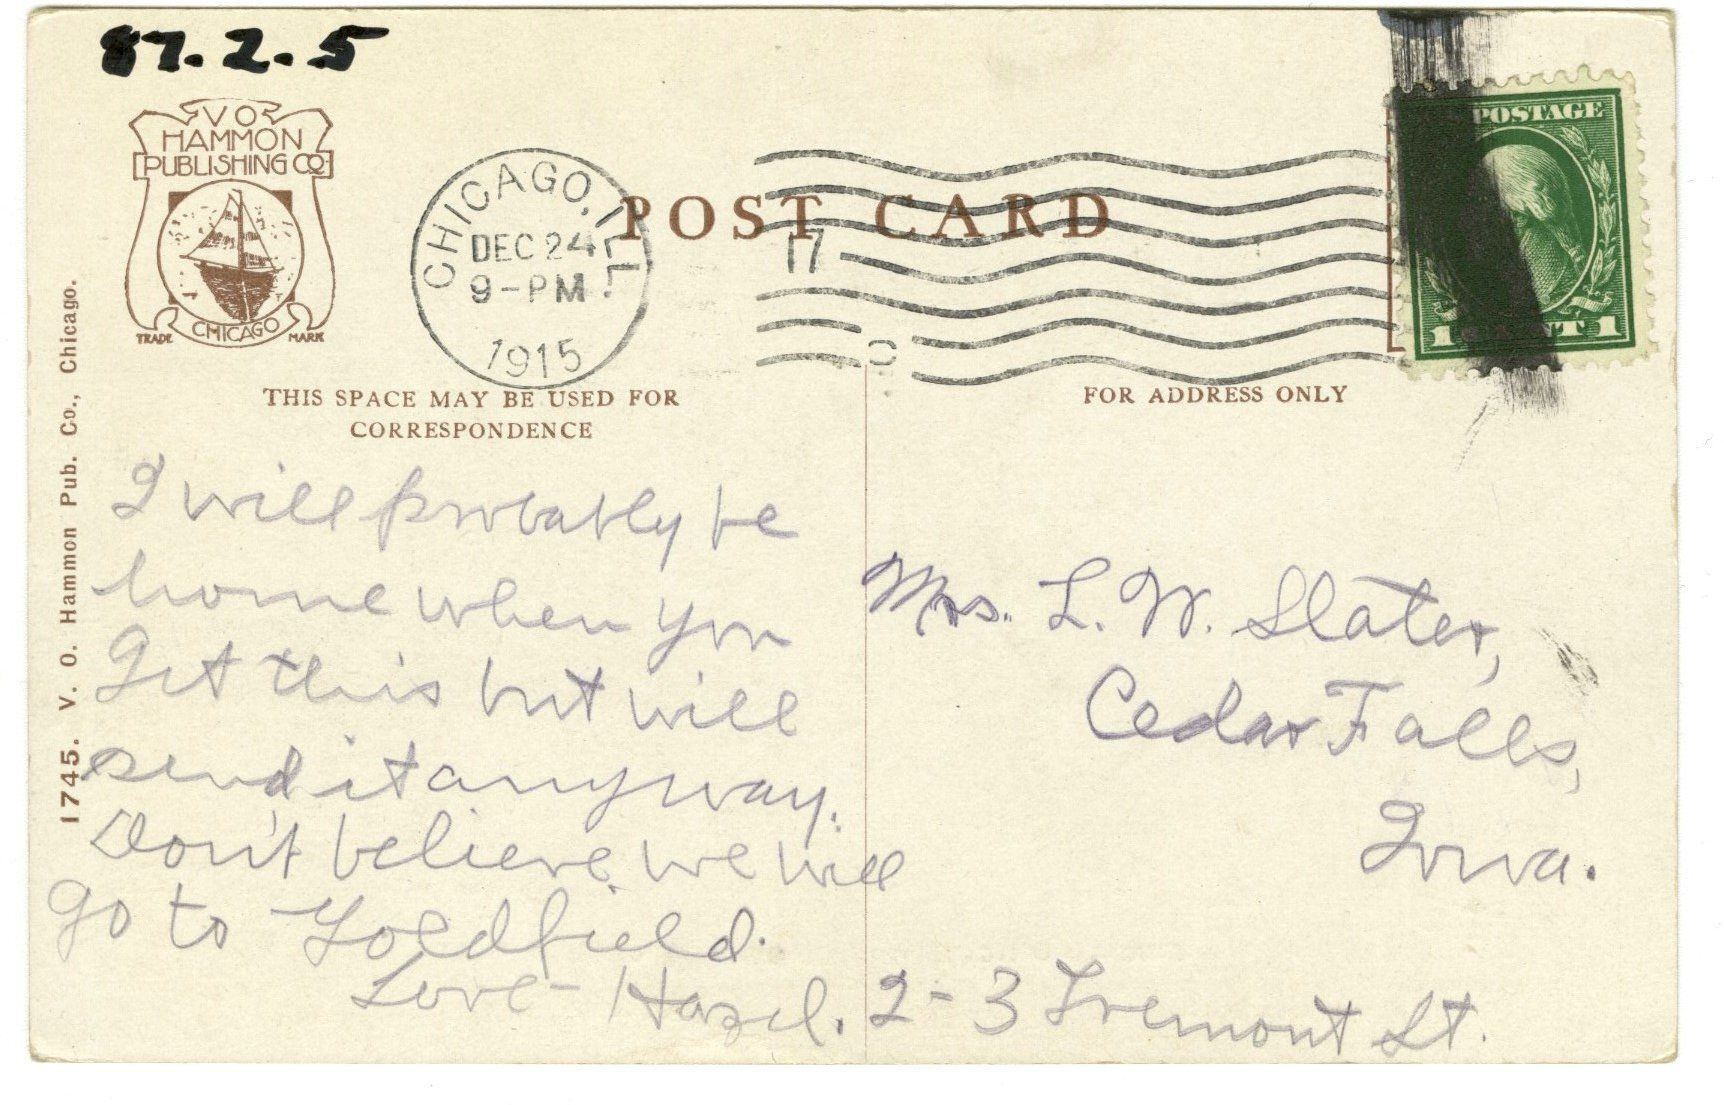 87.2.5
V O
HAMMON
PUBLISHING CO
CHICAGO
TRADE MARK
CHICAGO, ILL.
DEC 24
9-PM
1915
POST CARD
17
POSTAGE
1 CENT 1
THIS SPACE MAY BE USED FOR
CORRESPONDENCE
FOR ADDRESS ONLY
1745. V. O. Hammon Pub. Co., Chicago.
I will probably be
home when you
get this but will
send it anyway.
Don't believe we will
go to Goldfield.
Love - Hazel.
Mrs. L. W. Slater,
Cedar Falls,
Iowa.
2-3 Tremont St.